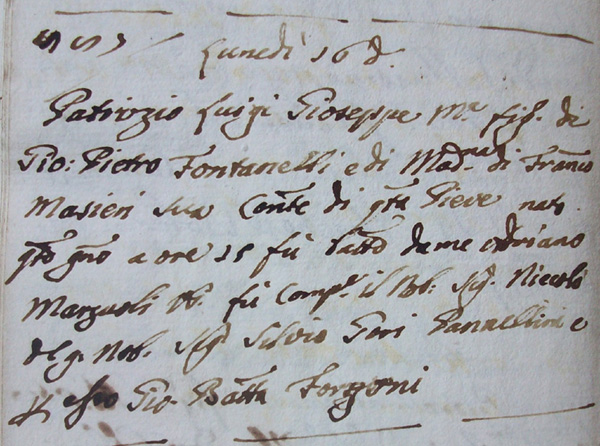 Lunedi 16 d.
Patrizio Luigi Gioseppe M.a fig. di
Gio: Pietro Fontanelli e di Mad.na di Franco
Masieri sua Con.te di q.ta Pieve nato
q.to gno a ore 15 fu batt.o da me Adriano
Marzuoli fu Comp.e il Nob: Sig. Niccolò
del q. Nob. Sig. Silvio Gori Pannellini e
Gio: Batta Forzoni